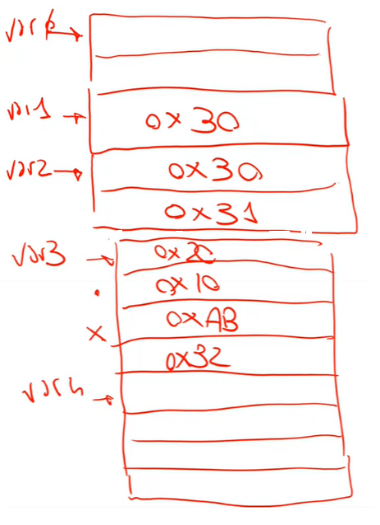 var1 → 0x30
var2 → 0x30
0x31
var3 → 0x20
. 0x10
x 0xAB
0x32
var4 →